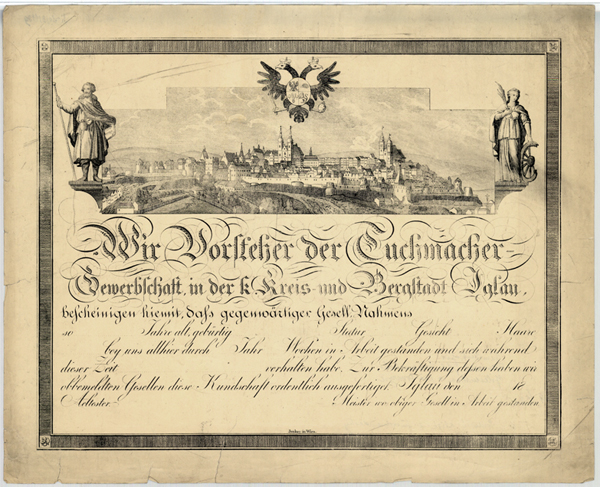 Wir Vorsteher der Tuchmacher-
Gewerbschaft, in der k. Kreis- und Bergstadt Iglau,
bescheinigen hiemit, daſs gegenwärtiger Gesell, Nahmens
so Jahr alt, gebürtig Statur Gesicht Haare
bey uns allhier durch Jahr Wochen in Arbeit gestanden und sich während
dieser Zeit verhalten habe. Zur Bekräftigung deſsen haben wir
obbemeldten Gesellen diese Kundschaft ordentlich ausgefertiget Iglau den 18
Aeltester Meister wo obiger Gesell in Arbeit gestanden
in Wien.